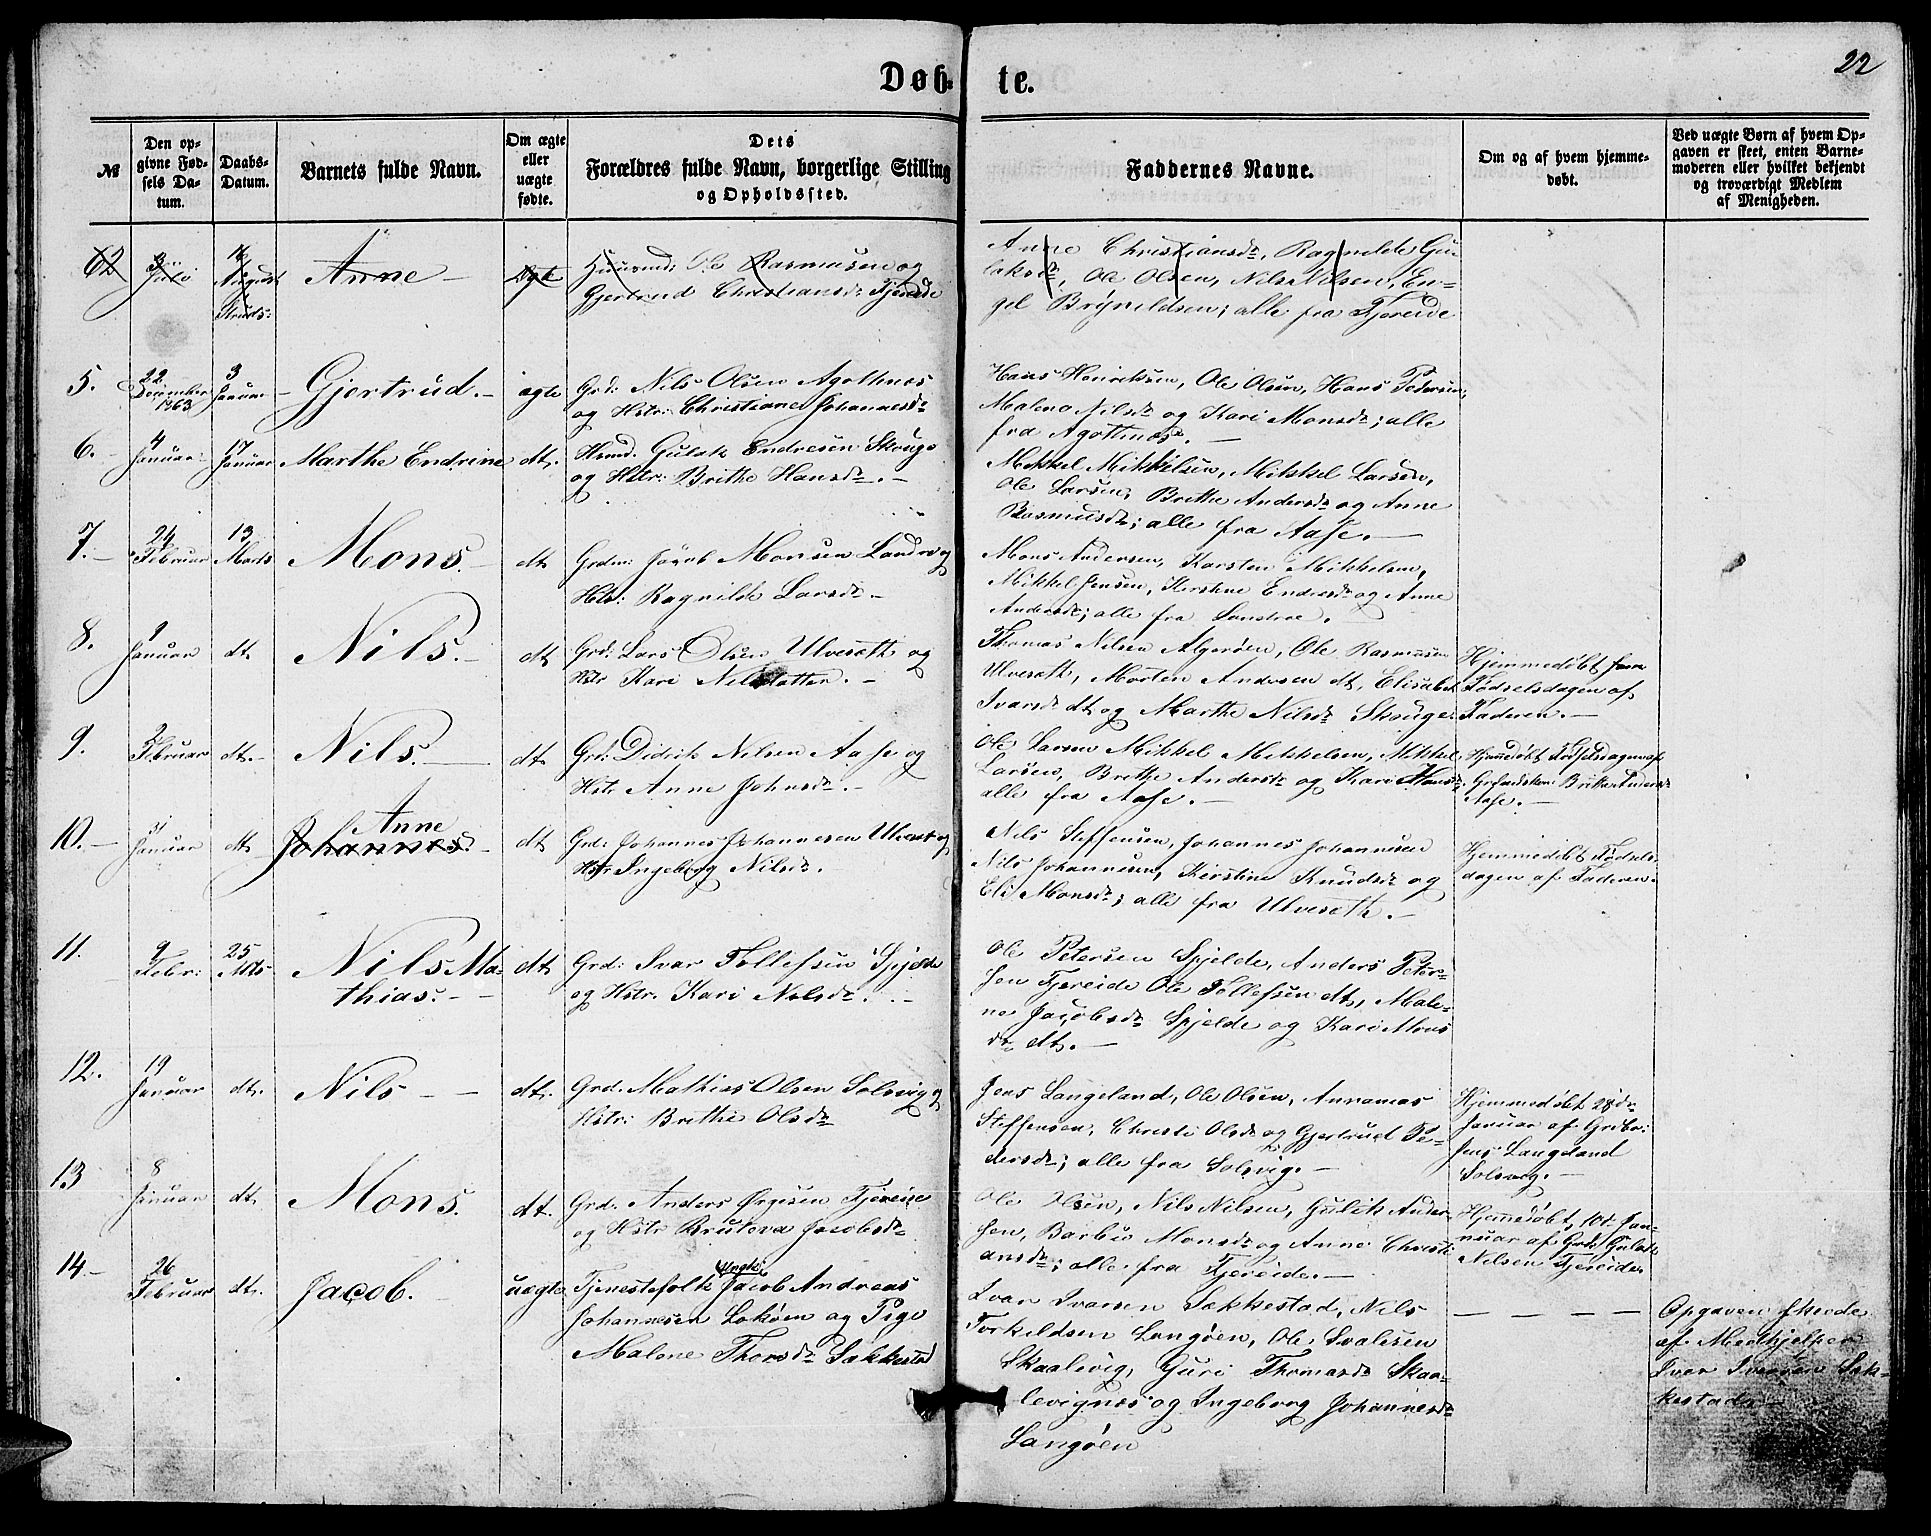 22
Døb- te.
№
Den op-
givne Fød-
sels Da-
tum.
Daabs-
Datum.
Barnets fulde Navn.
Om ægte
eller
uægte
fødte.
Dets
Forældres fulde Navn, borgerlige Stilling
og Opholdssted.
Faddernes Navne.
Om og af hvem hjemme-
døbt.
Ved uægte Børn af hvem Op-
gaven er skeet, enten Barne-
moderen eller hvilket bekjendt
og troværdigt Medlem
af Menigheden.
62
Juli
August
Anne
Ægte
Huusmd: Ole Rasmusen og
Gjertrud Christiansd: Fjereide
Anne Christiansdr, Ragnilde Gu-
laksdr, Ole Olsen, Nils Nilsen, En-
gel Brynildsen; alle fra Fjereide
5.
22
December
1863
3
Januar
Gjertrud.
ægte
Grd: Nils Olsen Agothnes
og Hstr: Christiane Johannesdr
Hans Henriksen, Ole Olsen, Hans Pedersen,
Malena Nilsdr og Kari Monsdr; alle
fra Agothnes.
6.
4
Januar
17
Januar
Marthe Endrine
dt.
Hmd. Gulak Endresen Skouge
og Hstr: Brithe Hansdr.
Mikkel Mikkelsen, Mikkel Larsen,
Ole Larsen, Brithe Andersdr og Anne
Rasmusdr; alle fra Aase.
7.
24
Februar
13
Marts
Mons.
dt
Grdm: Jacob Monsen Landro og
Hstr: Ragnilde Larsdr
Mons Andersen, Karsten Mikkelsen,
Mikkel Jensen, Kerstine Endresdr og Anne
Andersdr; alle fra Landroe.
8.
9
Januar
dt.
Nils.
dt
Grd: Lars Olsen Ulveseth og
Hstr Kari Nilsdatter.
Thomas Nilsen Algerøen, Ole Rasmusen
Ulveseth, Morten Andersen dt, Elisabet
Ivarsdr dt og Marthe Nilsdr Skouge
Hjemmedøbt paa
Fødselsdagen af
Faderen.
9.
3
Februar
dt.
Nils.
dt
Grd: Didrik Nilsen Aase og
Hstr Anne Johnsdr.
Ole Larsen Mikkel Mikkelsen, Mikkel
Larsen, Brithe Andersdr og Kari Hansdr;
alle fra Aase.
Hjemmedøbt Fødselsdagen af
Grdmdskone Brithe Andersdr
Aase.
10.
31
Januar
dt
Anne
Johannes.
dt
Grd: Johannes Johannesen Ulveset og
Hstr Ingeborg Nilsdr.
Nils Steffensen, Johannes Johannesen
Nils Johannesen, Kirstine Knudsdr og
Eli Monsdr; alle fra Ulveseth.
Hjemmedøbt Fødsels-
dagen af Faderen.
11.
9
Febr:
25
Mts
Nils Ma-
thias.
dt
Grd: Ivar Tollefsen Spjelde
og Hstr. Kari Nilsdr.
Ole Petersen Spjelde, Anders Peter-
sen Fjereide Ole Tollefsen dt, Male-
ne Jacobsdr Spjelde og Kari Mons
dr dt.
12.
19
Januar
dt.
Nils
dt.
Grd. Mathias Olsen Solsvig og
Hstr: Brithe Olsdr
Jens Langeland, Ole Olsen, Annanias
Steffensen, Christi Olsdr og Gjertrud Pe-
dersdr; alle fra Solsvig.
Hjemmedøbt 28de
Januar af Grdbr:
Jens Langeland
Solsvig.
13
8
Januar
dt.
Mons.
dt.
Grd. Anders Ørjesen Fjereide
og Hstr Brusteva Jacobsdr
Ole Olsen, Nils Nilsen, Gulak Ander-
sen, Barbro Monsdr og Anne Christi-
ansdr; alle fra Fjereide.
Hjemmedøbt, 10de Jan-
nuar af Grdr Gulak
Nilsen Fjereide
14
26
Februar
dt.
Jacob.
uægte
Tjenestefolk Ungk: Jacob Andreas
Johannesen Lokøen og Pige
Malene Thorsdr Sækkestad
Ivar Ivarsen Sækkestad, Nils
Torkildsen Langøen, Ole Svalesen
Skaalevig, Guri Thomasdr Skaa-
levignes og Ingeborg Johannesdr
Langøen
Opgaven skeede
af Medhjelper
Iver Iversen Sæk-
kestad.